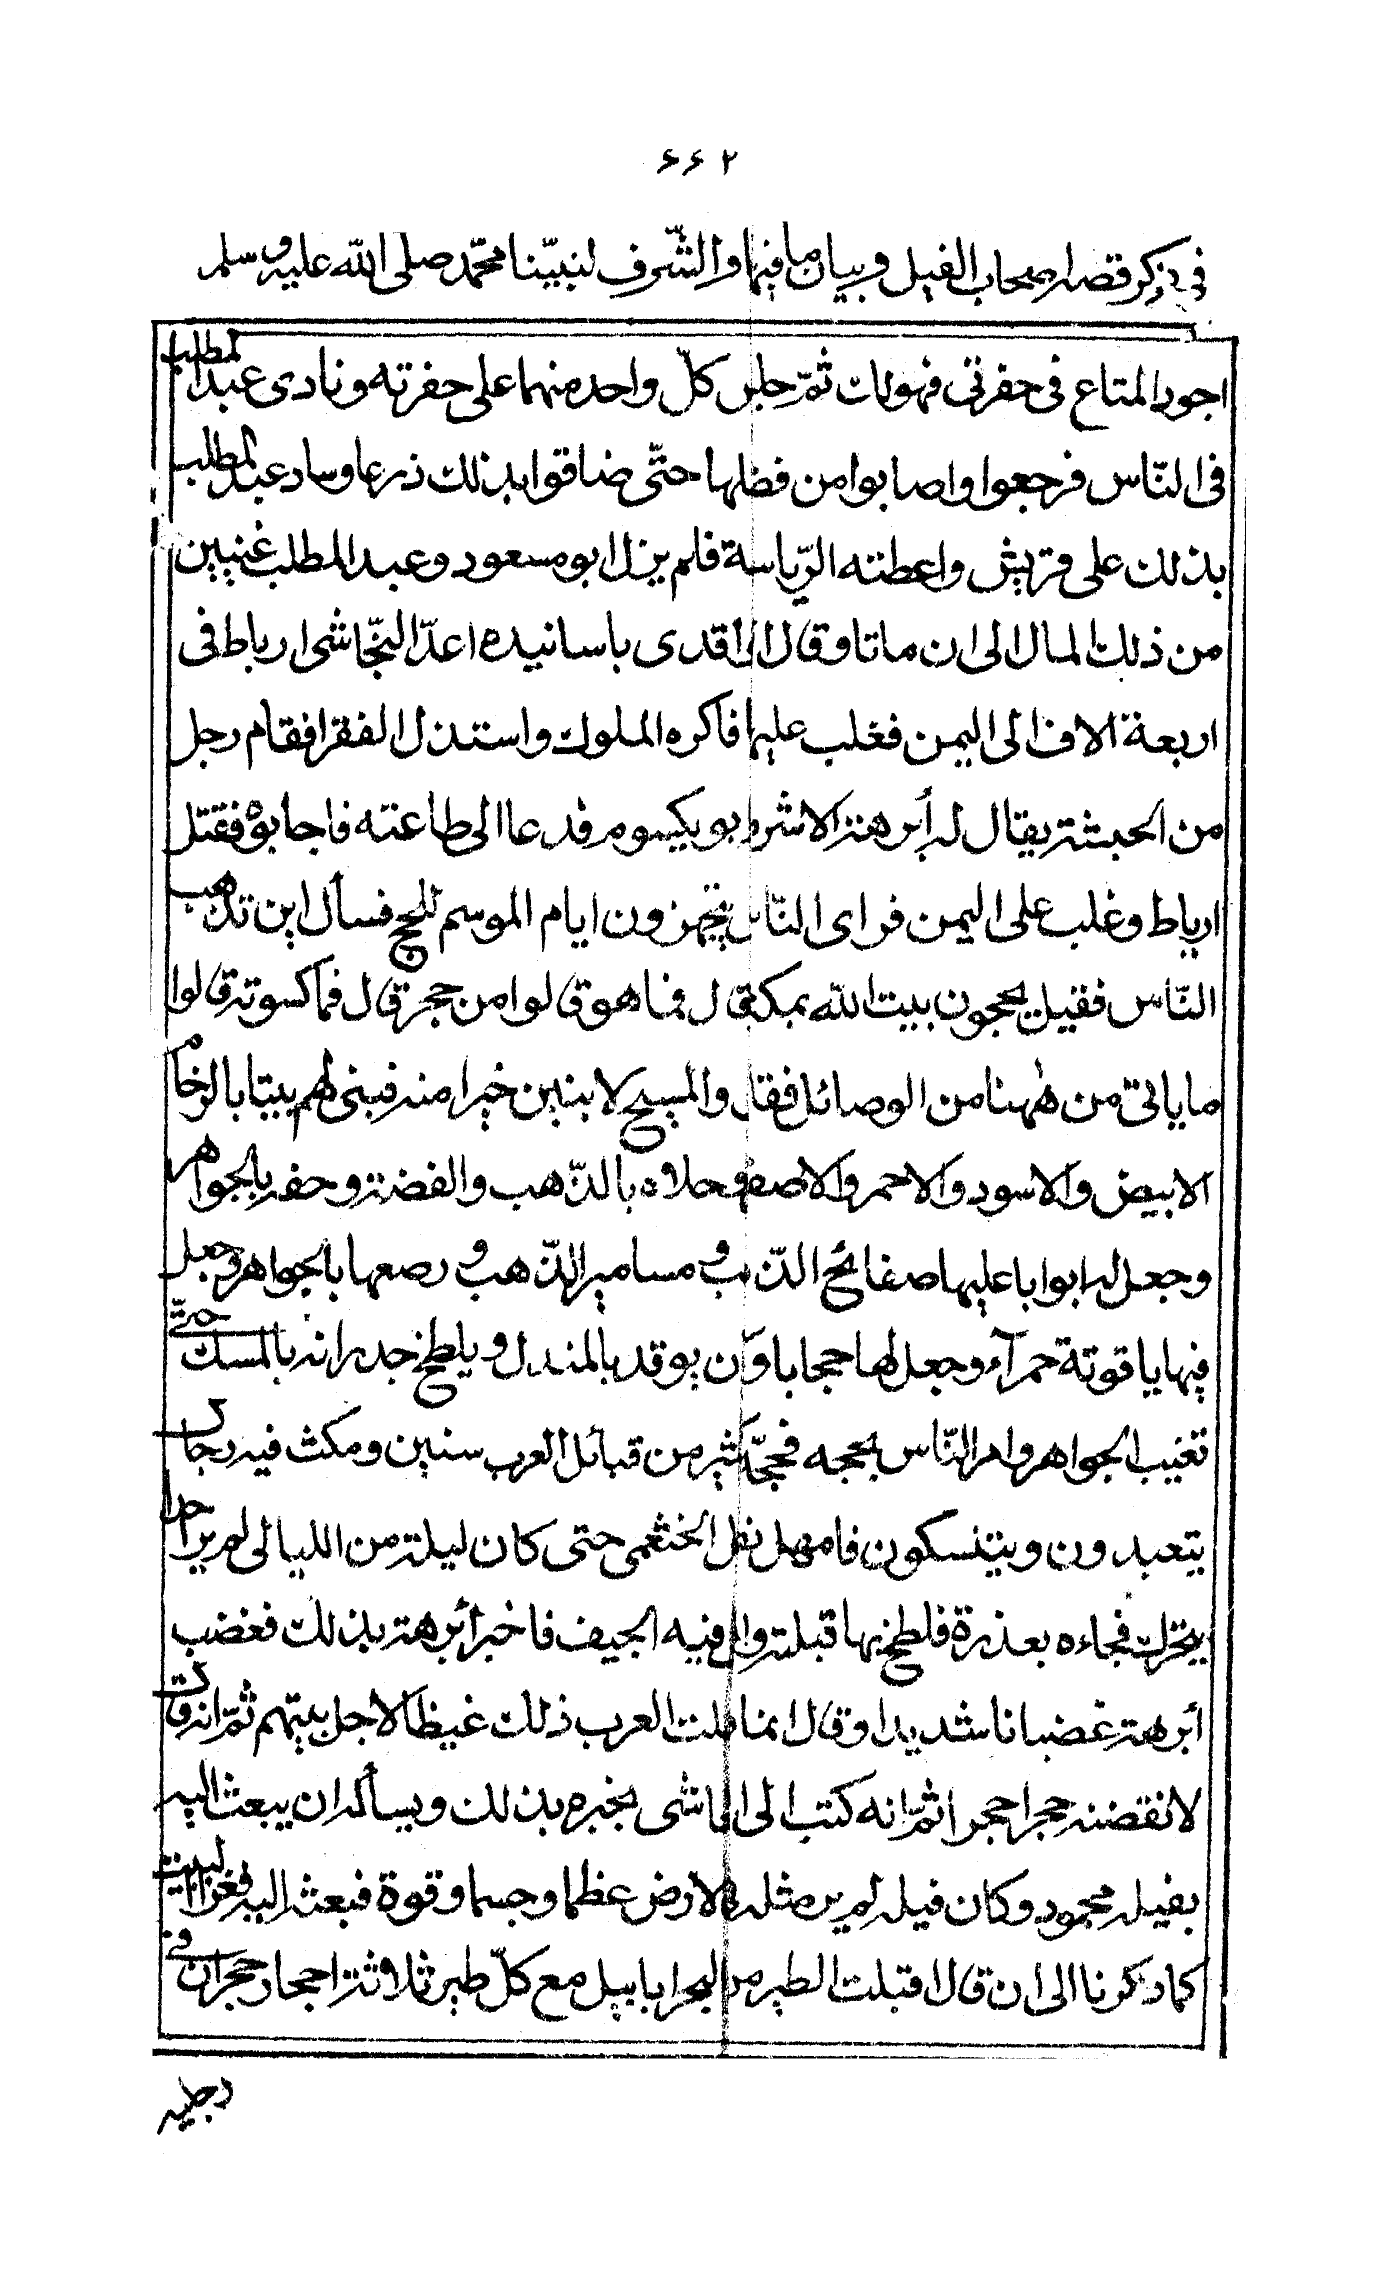 ۶۶۲
في ذكر قصه اصحاب الفيل وبيان ما فيها والشّرف لنبيّنا محمّد صلى الله عليه وسلم
اجود المتاع في حفرتي فهو لك ثمّ جلس كلّ واحد منهما على حفرته ونادى عبد المطلب
في النّاس فرجعوا واصابوا من فضلها حتّى ضاقوا بذلك ذرعا وساد عبد المطلب
بذلك على قريش واعطته الرّياسة فلم يزل ابو مسعود وعبد المطلب غنيين
من ذلك المال الى ان ماتا وقال الواقدى باسانيده اعدّ النجّاشى ارباط فى
اربعة الاف الى اليمن فغلب عليها فاكره الملوك واستذل الفقرا فقام رجل
من الحبشة يقال له أبرهة الاشرم ابو يكسوم فدعا الى طاعته فاجابوه فقتل
ارياط وغلب على اليمن فراى النّاس يتجهزون ايام الموسم للحج فسأل اين تذهب
النّاس فقيل يحجون بيت الله بمكة قال فما هو قالوا من حجر قال فما كسوته قالوا
ما ياتي من هٰهنا من الوصائل فقال والمسيح لابنين خيرا منه فبنى لهم بيتا بالرخام
الابيض والاسود والاحمر والاصفر وحلاه بالذّهب والفضة وحفه بالجواهر
وجعل له ابوابا عليها صفائح الذّهب ومسامير الذّهب ورصعها بالجواهر وجعل
فيها ياقوتة حمرآء وجعل لها حجابا وكان يوقد بالمندل ويلطخ جدرانه بالمسك حتّى
تغيب الجواهر وامر النّاس بحجه فحجّه كثير من قبائل العرب سنين ومكث فيه رجال
يتعبدون ويتنسكون فامهل نفيل الخثعمى حتى كان ليلة من الليالى لم ير احدا
يتحرك فجاءه بعذرة فلطخ بها قبلته والقى فيه الجيف فاخبر أبرهة بذلك فغضب
أبرهة غضبانا شديدا وقال انما فعلت العرب ذلك غيظا لاجل بيتهم ثمّ انه قال
لانقضنه حجرا حجرا ثمّ انه كتب الى النجاشى يخبره بذلك ويسأله ان يبعث اليه
بفيله محمود وكان فيله لم ير مثله فى الارض عظما وجسما وقوة فبعثه اليه فغزا البيت
كما ذكرنا الى ان قال اقبلت الطير من البحر ابابيل مع كلّ طير ثلاثة احجار حجران فى
رجليه